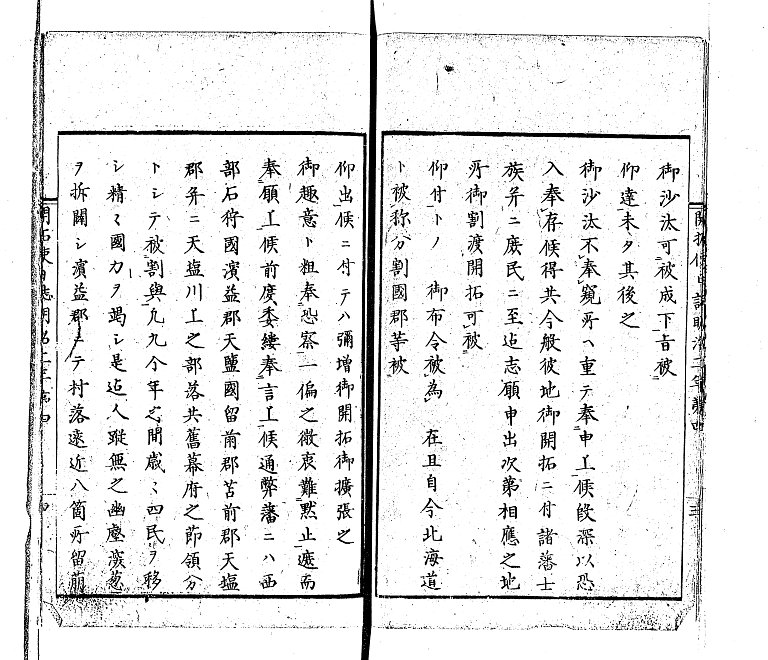 御沙汰可被成下旨被
仰達未タ其後之
御沙汰不奉窺所ハ重テ奉申上候段深以恐
入奉存候得共今般彼地御開拓ニ付諸藩士
族并ニ庶民ニ至迄志願申出次第相應之地
所御割渡開拓可被
仰付トノ 御布令被為 在且自今北海道
ト被称分割國郡等被
仰出候ニ付テハ彌増御開拓御擴張之
御趣意ト粗奉恐察一偏之微衷難黙止遮而
奉願上候前度委縷奉言上候通弊藩ニハ西
部石狩國濱益郡天鹽國留萠郡苫前郡天塩
郡并ニ天塩川上之部落共舊幕府之節領分
トシテ被割與凡九今年之間歳〻四民ヲ移
シ精々國力ヲ竭シ是迄人蹤無之幽塵
ヲ拆闢シ濱益郡ニテ村落遠近八箇所留萠